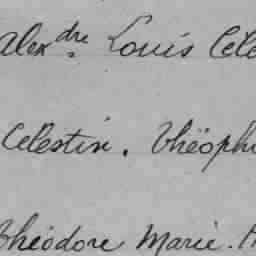 Alex.dre Louis Cele
Celestin. Théophi
Théodore Marie. A